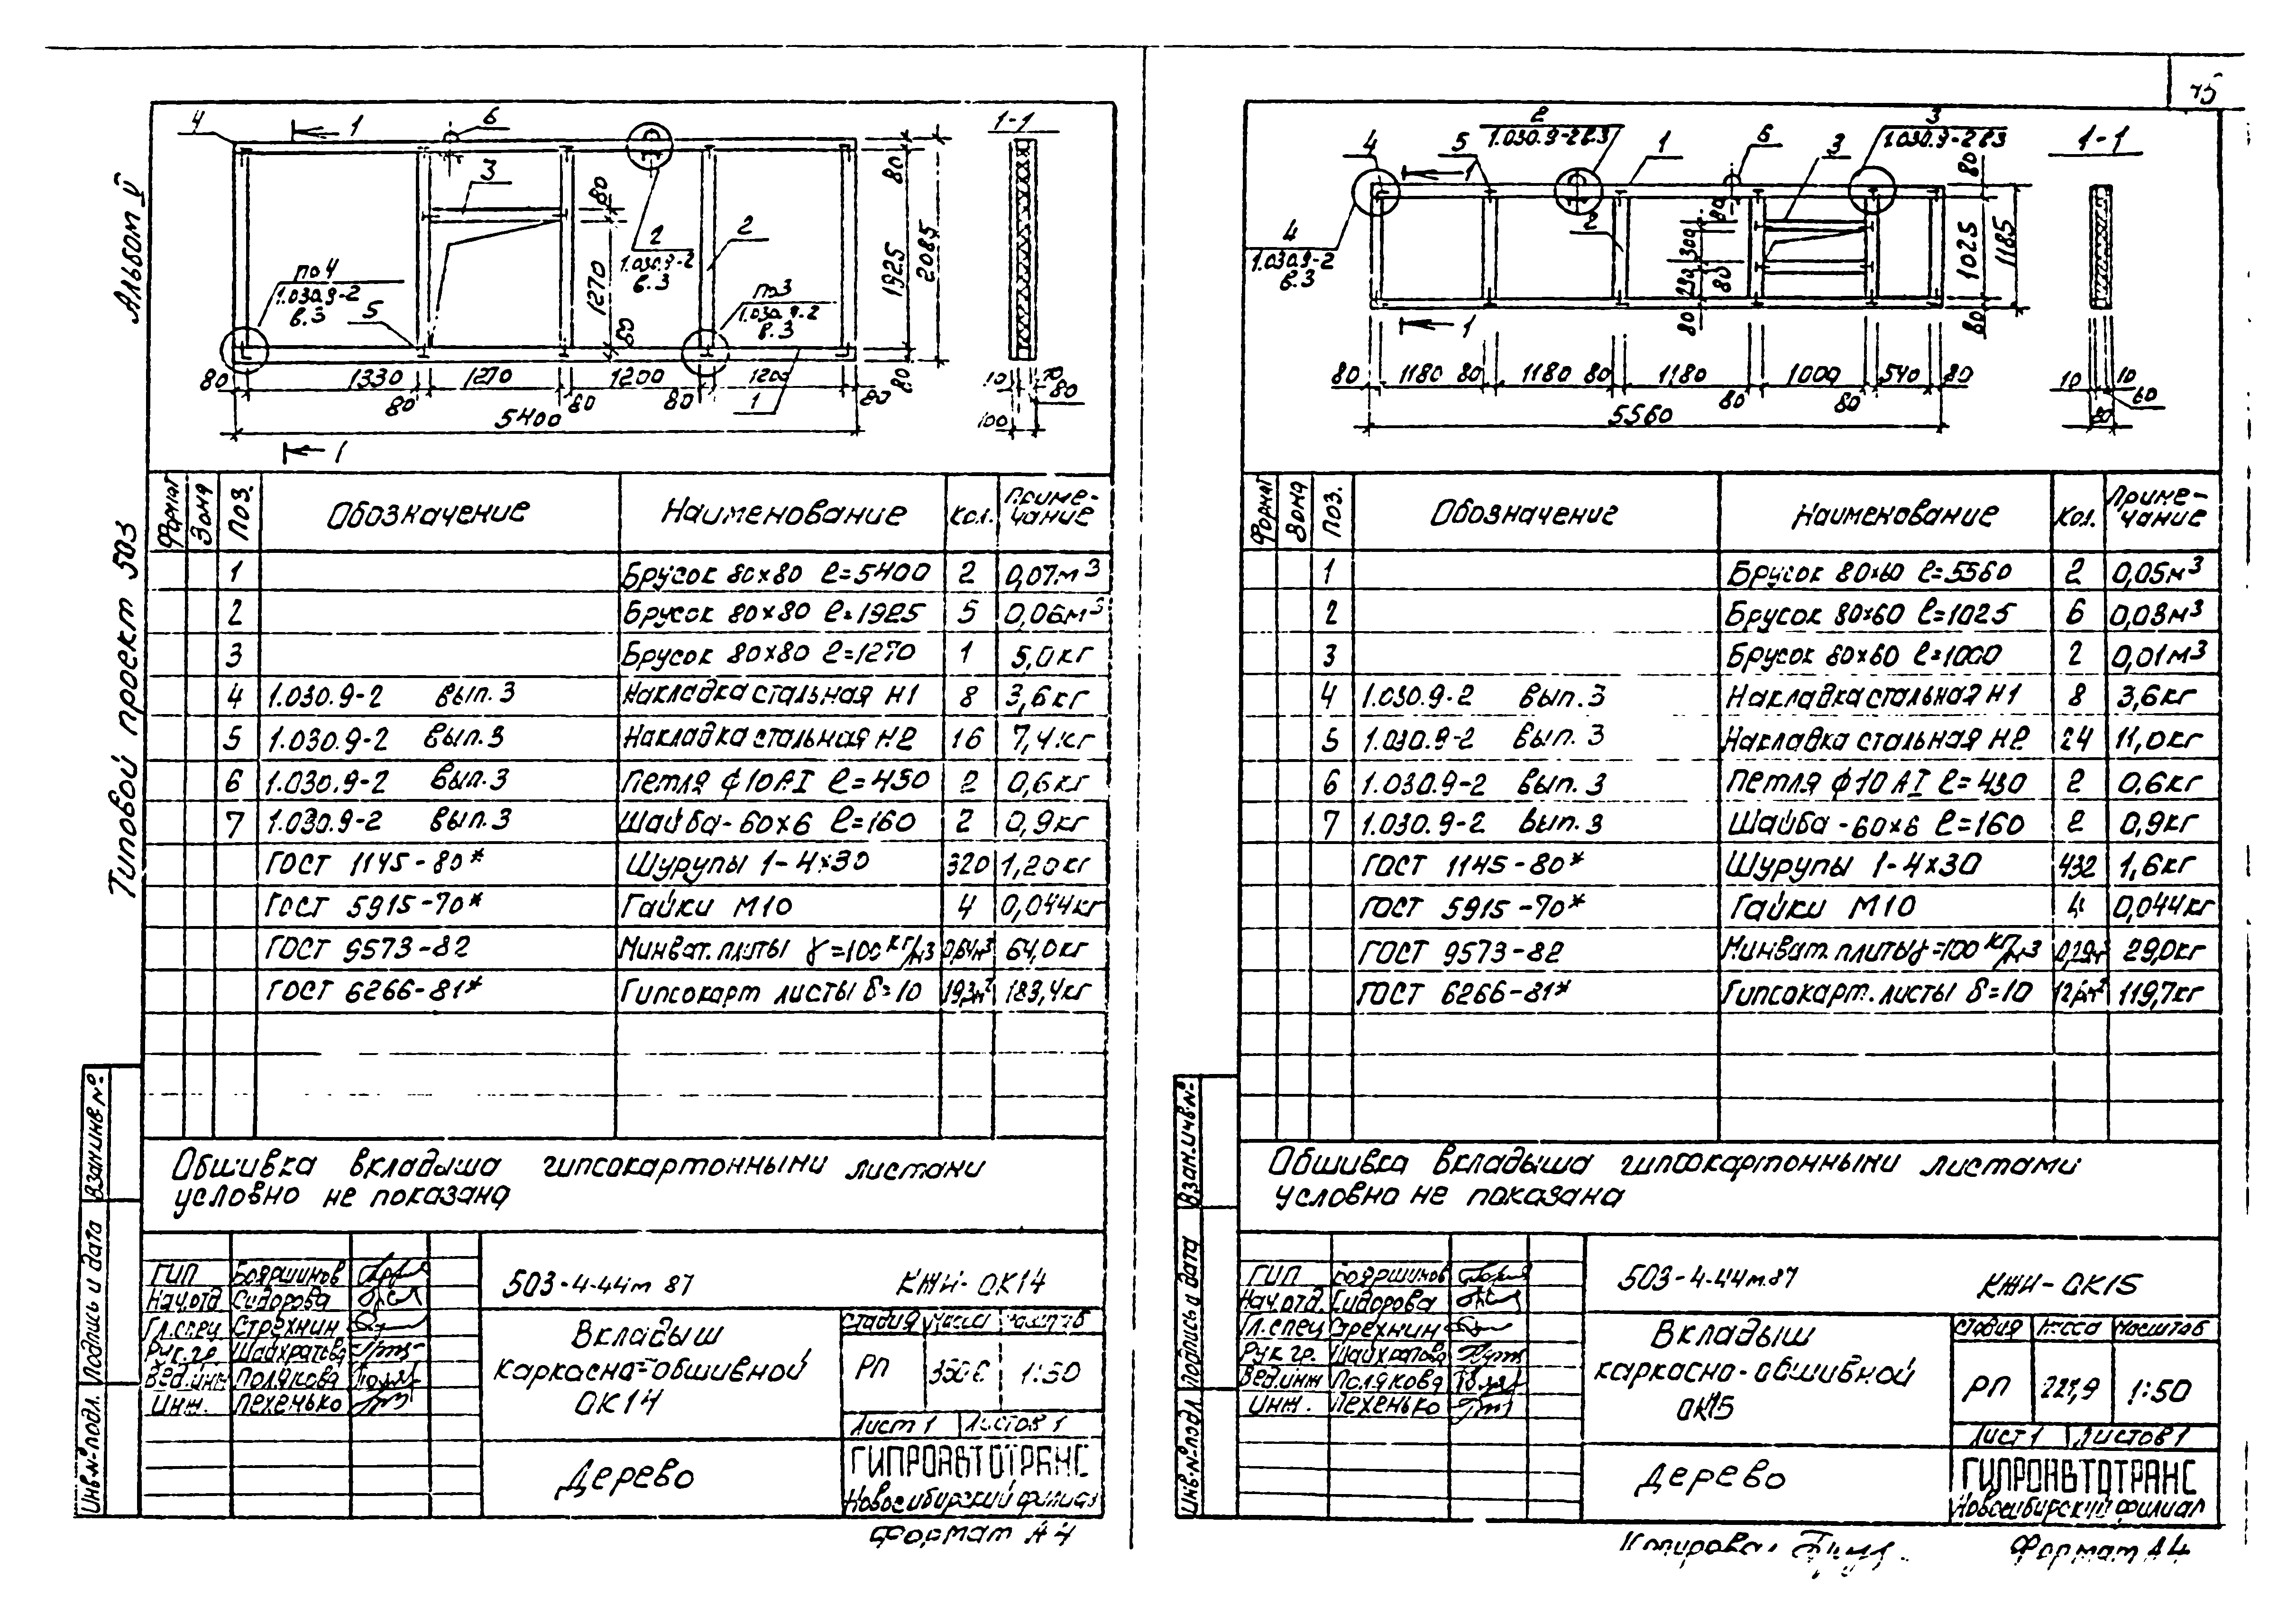 Альбом V
Типовой проект 503
4
1
6
1-1
3
80
2
1.030.9-2
в.3
2
1270
80
1925
2085
80
по 4
1.030.9-2
в.3
5
по 3
1.030.9-2
в.3
80
1330
1270
1200
1200
80
80
80
80
1
5400
10
10
80
100
1
Формат
Зона
Поз.
Обозначение
Наименование
Кол.
Приме-
чание
1 Брусок 80х80 ℓ=5400 2 0,07м³
2 Брусок 80х80 ℓ=1925 5 0,06м³
3 Брусок 80х80 ℓ=1270 1 5,0кг
4 1.030.9-2 вып.3 Накладка стальная Н1 8 3,6кг
5 1.030.9-2 вып.3 Накладка стальная Н2 16 7,4кг
6 1.030.9-2 вып.3 Петля ф10АI ℓ=430 2 0,6кг
7 1.030.9-2 вып.3 Шайба-60х6 ℓ=160 2 0,9кг
ГОСТ 1145-80* Шурупы 1-4х30 320 1,20кг
ГОСТ 5915-70* Гайки М10 4 0,044кг
ГОСТ 9573-82 Минват. плиты γ=100кг/м3 0,64м³ 64,0кг
ГОСТ 6266-81* Гипсокарт листы δ=10 19,3м² 183,4кг
Обшивка вкладыша гипсокартонными листами
условно не показана
Взам.инв№
Подпись и дата
Инв.№подл.
ГИП Бояршинов
Нач.отд Сидорова
Гл.спец Стрехнин
Рук.гр Шайхратова
Вед.инж Полякова
Инж. Пехенько
503-4-44м 87
КЖИ-ОК14
Вкладыш
каркасно-обшивной
ОК14
Стадия Масса Масштаб
РП 1:50
Лист 1 Листов 1
Дерево
ГИПРОАВТОТРАНС
Новосибирский филиал
Формат А4
4
5
2
1.030.9-2 в.3
1
6
3
3
1.030.9-2 в.3
1-1
1
80
4
1.030.9-2
в.3
2
80
300
80
80
1025
1185
80
1
80
1180
80
1180
80
1180
80
1000
80
540
80
5560
10
10
60
80
Формат
Зона
Поз.
Обозначение
Наименование
Кол.
Приме-
чание
1 Брусок 80х60 ℓ=5560 2 0,05м³
2 Брусок 80х60 ℓ=1025 6 0,03м³
3 Брусок 80х60 ℓ=1000 2 0,01м³
4 1.030.9-2 вып.3 Накладка стальная Н1 8 3,6кг
5 1.030.9-2 вып.3 Накладка стальная Н2 24 11,0кг
6 1.030.9-2 вып.3 Петля ф10 АI ℓ=430 2 0,6кг
7 1.030.9-2 вып.3 Шайба-60х6 ℓ=160 2 0,9кг
ГОСТ 1145-80* Шурупы 1-4х30 432 1,6кг
ГОСТ 5915-70* Гайки М10 4 0,044кг
ГОСТ 9573-82 Минват. плиты γ=100 кг/м3 0,29м³ 29,0кг
ГОСТ 6266-81* Гипсокарт. листы δ=10 12,6м² 119,7кг
Обшивка вкладыша гипсокартонными листами
условно не показана
Взам.инв№
Подпись и дата
Инв.№подл
ГИП Бояршинов
Нач.отд. Сидорова
Гл.спец Стрехнин
Рук гр. Шайхратова
Вед.инж Полякова
Инж. Пехенько
503-4-44м.87
КЖИ-ОК15
Вкладыш
каркасно-обшивной
ОК15
Стадия Масса Масштаб
РП 1:50
Лист 1 Листов 1
Дерево
ГИПРОАВТОТРАНС
Новосибирский филиал
Копировал
Формат А4